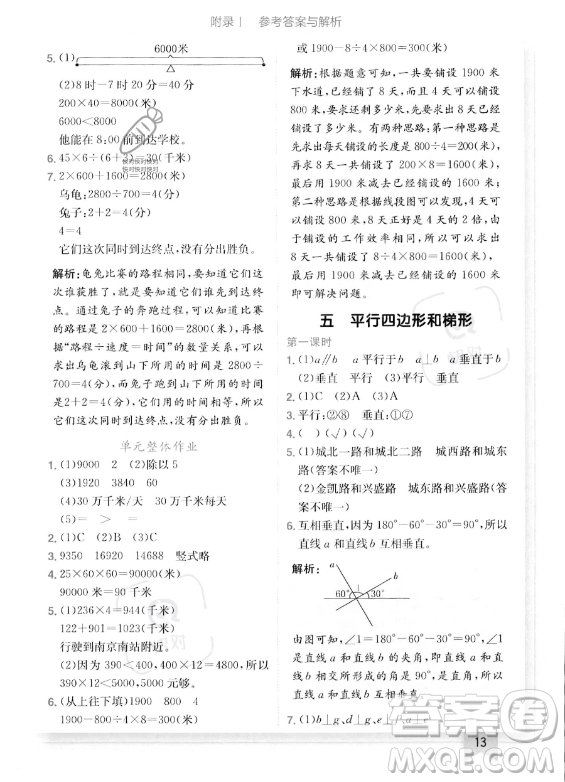 附录Ⅰ 参考答案与解析
5. (1)
6000米
(2)8时-7时20分=40分
200×40=8000(米)
6000<8000
他能在8:00前到达学校。
6. 45×6÷(6+3)=30(千米)
7. 2×600+1600=2800(米)
乌龟:2800÷700=4(分)
兔子:2+2=4(分)
4=4
它们这次同时到达终点,没有分出胜负。
解析:龟兔比赛的路程相同,要求它们这
次谁获胜了,就是求它们谁用的时间更
短。通过兔子的奔跑过程可以知道比赛
的路程是2×600+1600=2800(米),根
据“路程÷速度=时间”的数量关系,可以
求出乌龟从山下爬到山下所用的时间
是2800÷700=4(分)。根据题意可以
知道兔子从山下跑到山下所用的时间是
2+2=4(分)。它们用的时间相等,所以
它们这次同时到达终点,没有分出胜负。
单元整体作业
1. (1)9000 2 (2)除以5
(3)1920 3840 60
(4)30万千米/天 30万千米/天
(5)= > =
2. (1)C (2)B (3)A
3. 9350 16920 14688 竖式略
4. 25×60×60=90000(千米)
90000千米>90千米
5. (1)236×4=944(千米)
122+901=1023(千米)
行驶到南京南站附近。
(2)390<400,400×10=4000(元)
390×10<4000,
带4000元够兑换。
6. (从上往下填)1900 800
1900-800÷4×8=300(米)
或1900-8÷4×800=300(米)
解析:根据题意可知,一共要铺设1900米
下水道,已经铺了8天,而且4天可铺设
800米,求剩下没铺的长度,要知道已经铺
设了多少米。有两种思路:第一种思路
是先求每天铺设的长度是800÷4=200(米),
再求8天一共铺设的长度是200×8=1600(米),
最后用1900米减去已经铺设的长度;
第二种思路是根据线段图可以发现,4天
可以铺设800米,8天正好是4天的2倍,
由于铺设的工作效率相同,可以求出
8天一共铺设的长度是800×2=1600(米),
最后用1900米减去已经铺设的长度
即可解决问题。
五 平行四边形和梯形
第一课时
1. (1)a∥b a平行于b a⊥b a垂直于b
(2)垂直 垂直 垂足
2. (1)A (2)D (3)A
3. 平行:②⑧ 垂直:①⑦
4. ( )( )(√)
5. (1)城北一路和城北二路 城南路和城东
路(答案不唯一)
(2)金凯路和兴盛路 城南路和兴盛路
(答案不唯一)
6. 互相垂直,因为180°-60°-30°=90°,所以
直线a和直线b互相垂直。
解析:
a
b
60° 1 30°
由图可知,∠1=180°-60°-30°=90°,∠1
是直线a和直线b的夹角,即直线a和直
线b的夹角是90°,所以直线a和直线b
互相垂直。
7. (1)b⊥g,d⊥g,e⊥f,a⊥c
13